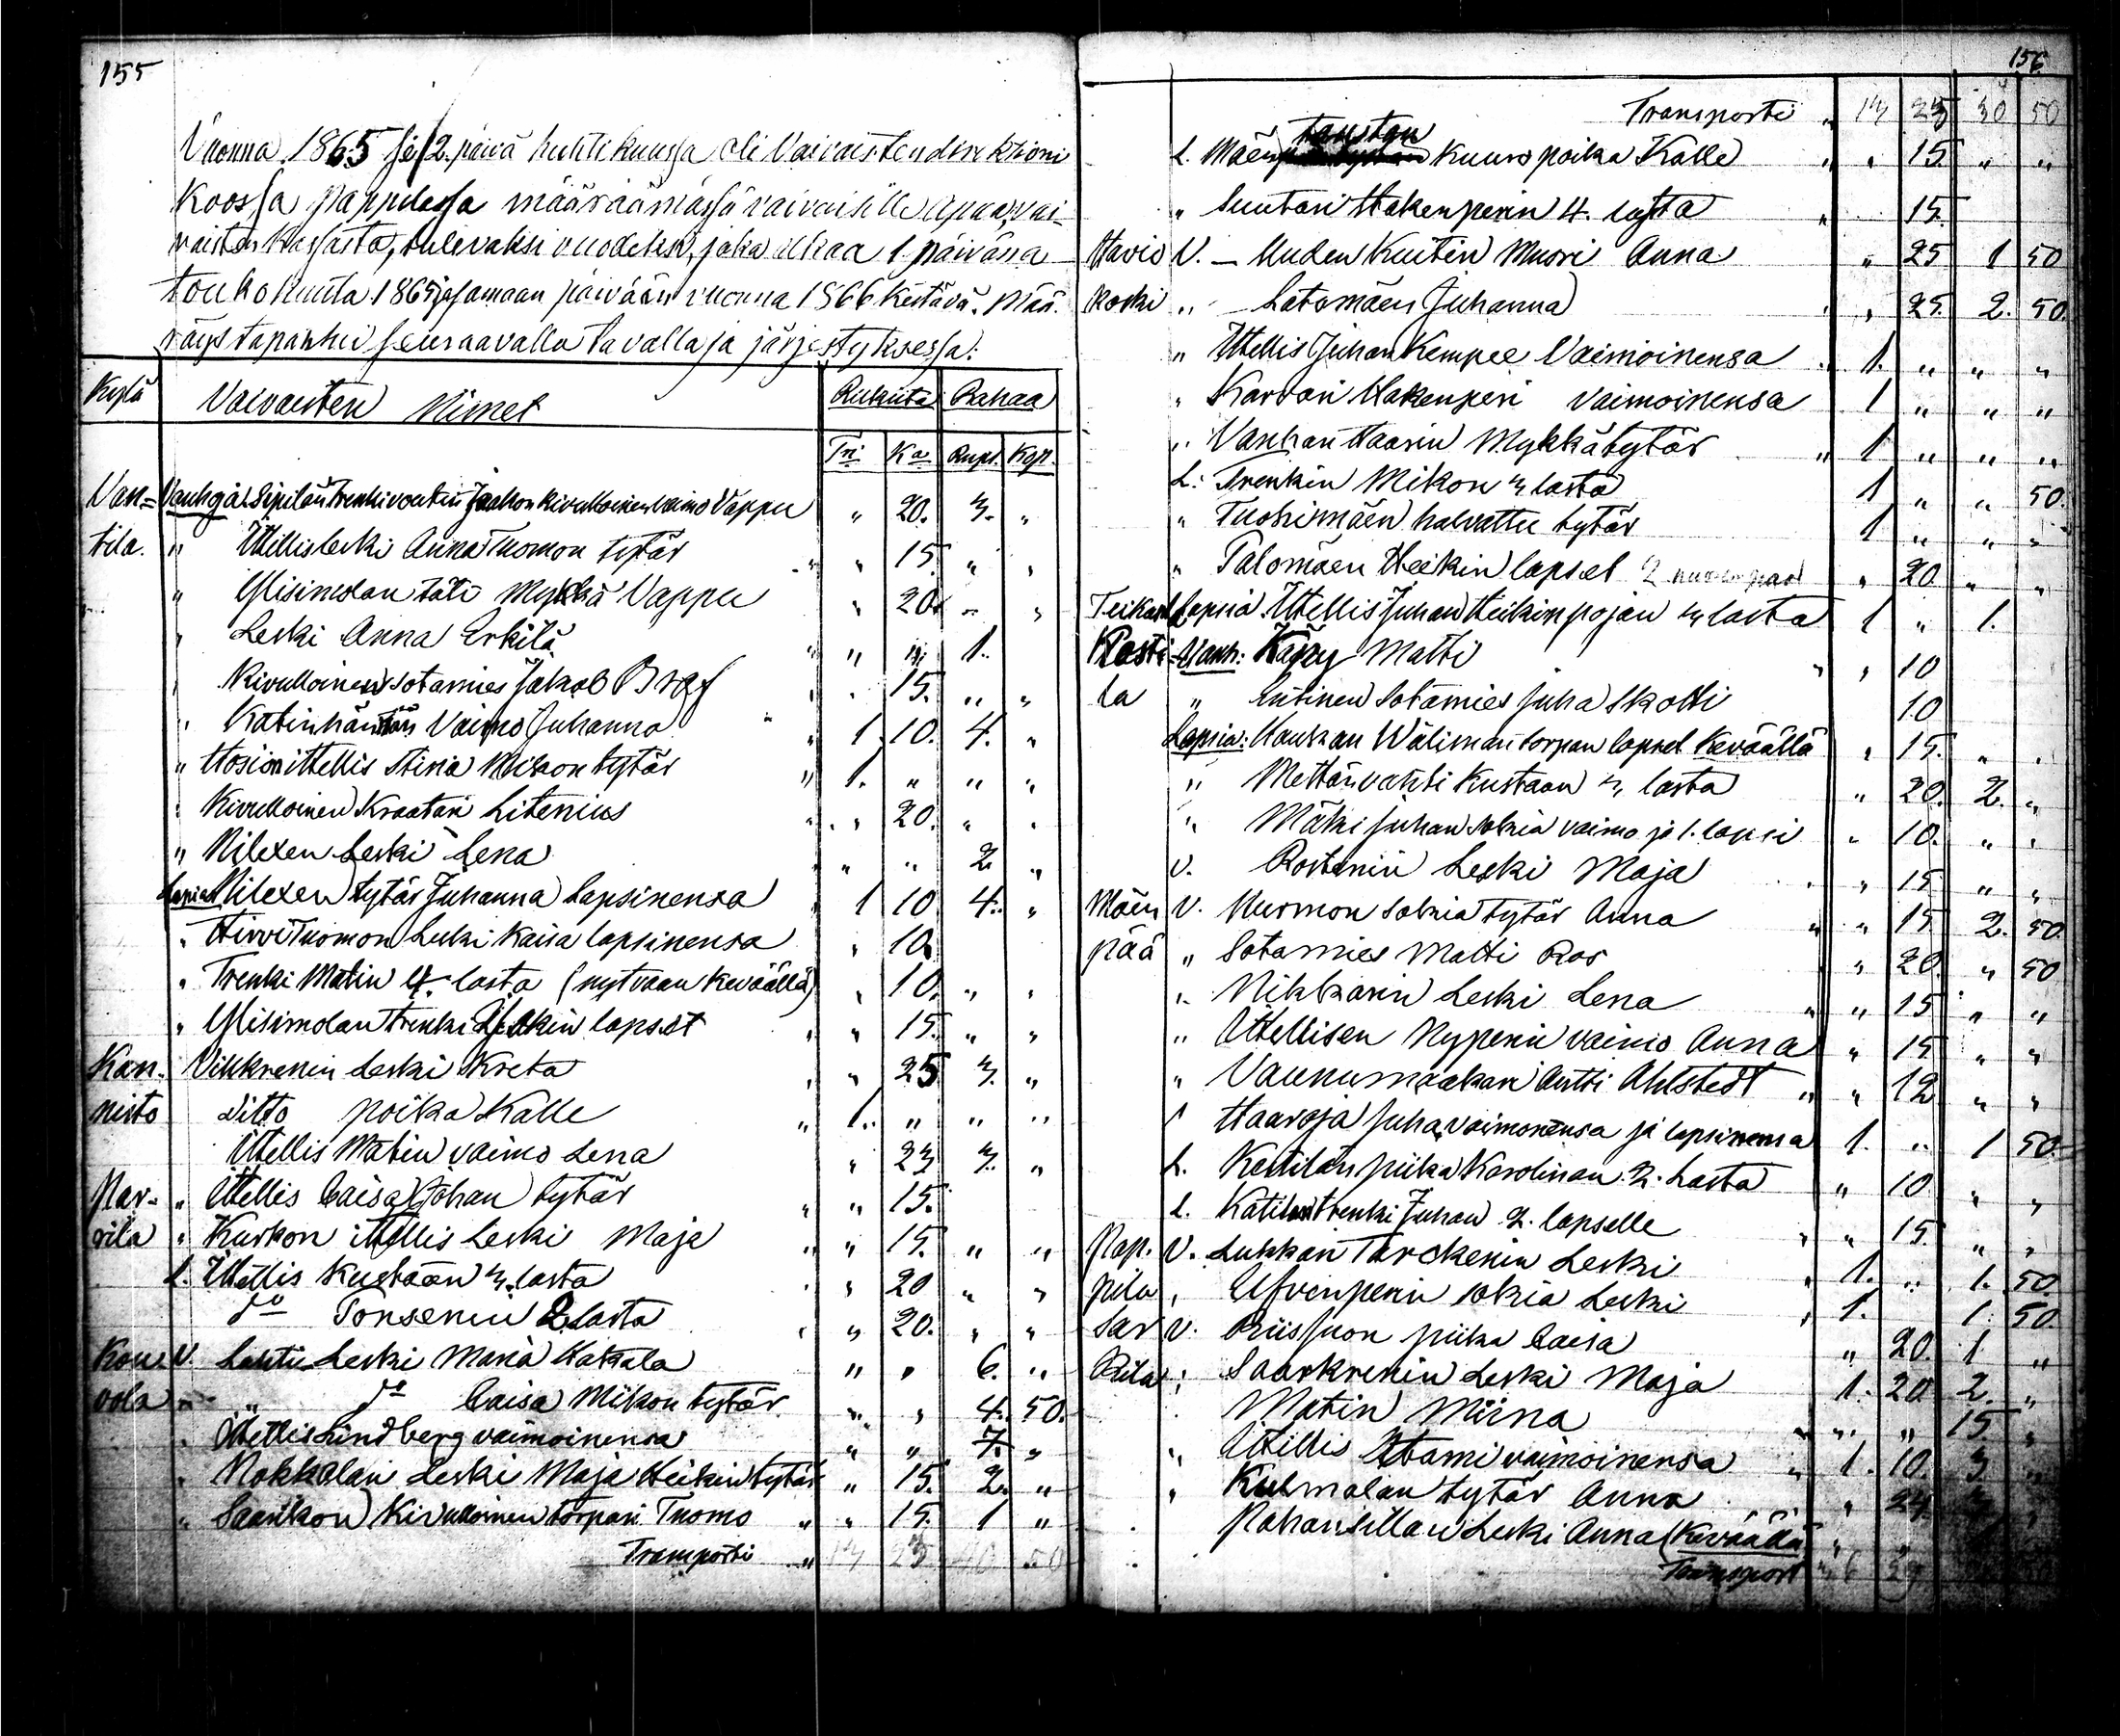 155
Vuonna 1865 se 12. päivä huhtikuussa oli Vaivaisten direktioni
koossa pappilassa määräämässä vaivaisille apua, vai-
vaisten kassasta, tulevaksi vuodeksi, joka alkaa 1 päivänä
toukokuuta 1865 ja samaan päivään vuonna 1866 kestävä. Mää-
räys tapahtui seuraavalla tavalla ja järjestyksessä:
Kylä Vaivaisten Nimet Rukiita Rahaa
Tri Ka Rupl. Kop.
Van= Vanhoja: Sipilän trenkivoutin Jaakon kivulloinen vaimo Vappu " 20. 3. "
tila. " Ittellis leski Anna Tuomon tytär " 15. " "
" Ylisimolan täti Mykkä Vappu " 20. " "
" Leski Anna Erkilä " " 1.
Kivulloinen sotamies Jakob Braf " 15. " "
" Katinhännän Vaimo Juhanna 1. 10. 4. "
" Hosion ittellis Stina Mikon tytär 1. " " "
" Kivulloinen Kraatari Litenius " 20. " "
" Nilexen Leski Lena " " 2. "
Lapset Nilexen tytär Juhanna Lapsinensa 1 10 4. "
" Hirvi Tuomon Leski Kaisa lapsinensa " 10.
" Trenki Matin 4. lasta (nyt vaan keväällä) " 10. " "
" Ylisimolan trenki Heikin lapset " 15. " "
Kan- Vikkrenin Leski Kreta " 25 3. "
nisto Ditto poika Kalle 1. " " "
Ittellis Matin vaimo Lena " 23 3. "
Par- " Ittellis Caisa Johan tytär " 15.
rila " Kurkon ittellis Leski Maja " 15. " "
L. Ittellis Kustaan 3. lasta " 20 " "
do Ponsenin 2 lasta " 20. " "
Kou- V. Lahti Leski Maria Kakala " " 6. "
vola " do Caisa Mikon tytär " " 4. 50.
" Ittellis Lindberg vaimoinensa " " 7. "
" Nokkalan Leski Maja Heikin tytär " 15. 2. "
" Saarikon Kivulloinen torpari Tuomo " 15. 1 "
Transporti
156
Transporti " 50
L. Mäen taustan Kuuro poika Kalle " 15. " "
" Suutari Hakenperin 4. lasta 15.
Havis V. – Uuden Kuitin Muori Anna " 25 1 50
koski " – Latomäen Juhanna " 25. 2. 50.
" Ittellis Juhan Kempee Vaimoinensa 1. " " "
" Karvari Hakenperi vaimoinensa 1 " " "
" Vanhan Haarin Mykkä tytär 1 " " "
L: Trenkin Mikon 3 lasta 1 " " 50.
" Tuohimäen halvattu tytär 1 " " "
" Palomäen Heikin lapset 2 " 20. " "
Lapsia Ittellis Juhan Heikin pojan 3 lasta 1 " 1.
Rosti= Vanh: Käppy Matti " 10
la " Entinen Sotamies Juha Skotti 10
Lapsia: Haukan Wälimän torpan lapset keväällä " 15. " "
" Mettän vahti Kustaan 3 lasta " 20. 2. "
" Mäki Juhan sokia vaimo ja 1. lapsi " 10. " "
V. Rostenin Leski Maja " 15 " "
Mäen V. Nurmon sokia tytär Anna " 15. 2. 50.
pää " Sotamies Matti Ros " 20. " 50
" Nikkarin Leski Lena " 15 " "
" Ittellisen Nyperin vaimo Anna " 15 " "
" Vaunumaakari Antti Ahlstedt " 12 " "
" Haaroja Juha vaimonensa ja lapsinensa 1. " 1 50
L. Kettilän piika Karolinan 2. Lasta " 10 " "
L. Kätilän trenki Juhan 2. lapselle " 15. " "
Pap. V. Lukkari Torckenin Leski 1. " 1. 50.
pila " Elfvenperin sokia Leski 1. 1. 50.
Sar V. Riisjuon piika Caisa " 20. 1 "
kila " Saarkrenin Leski Maja 1. 20. 2. "
Matin Miina " " 15 "
" Ittellis Stami vaimoinensa 1. 10. 3 "
" Kulmalan tytär Anna "
Pahansillan Leski Anna (keväällä
Transport